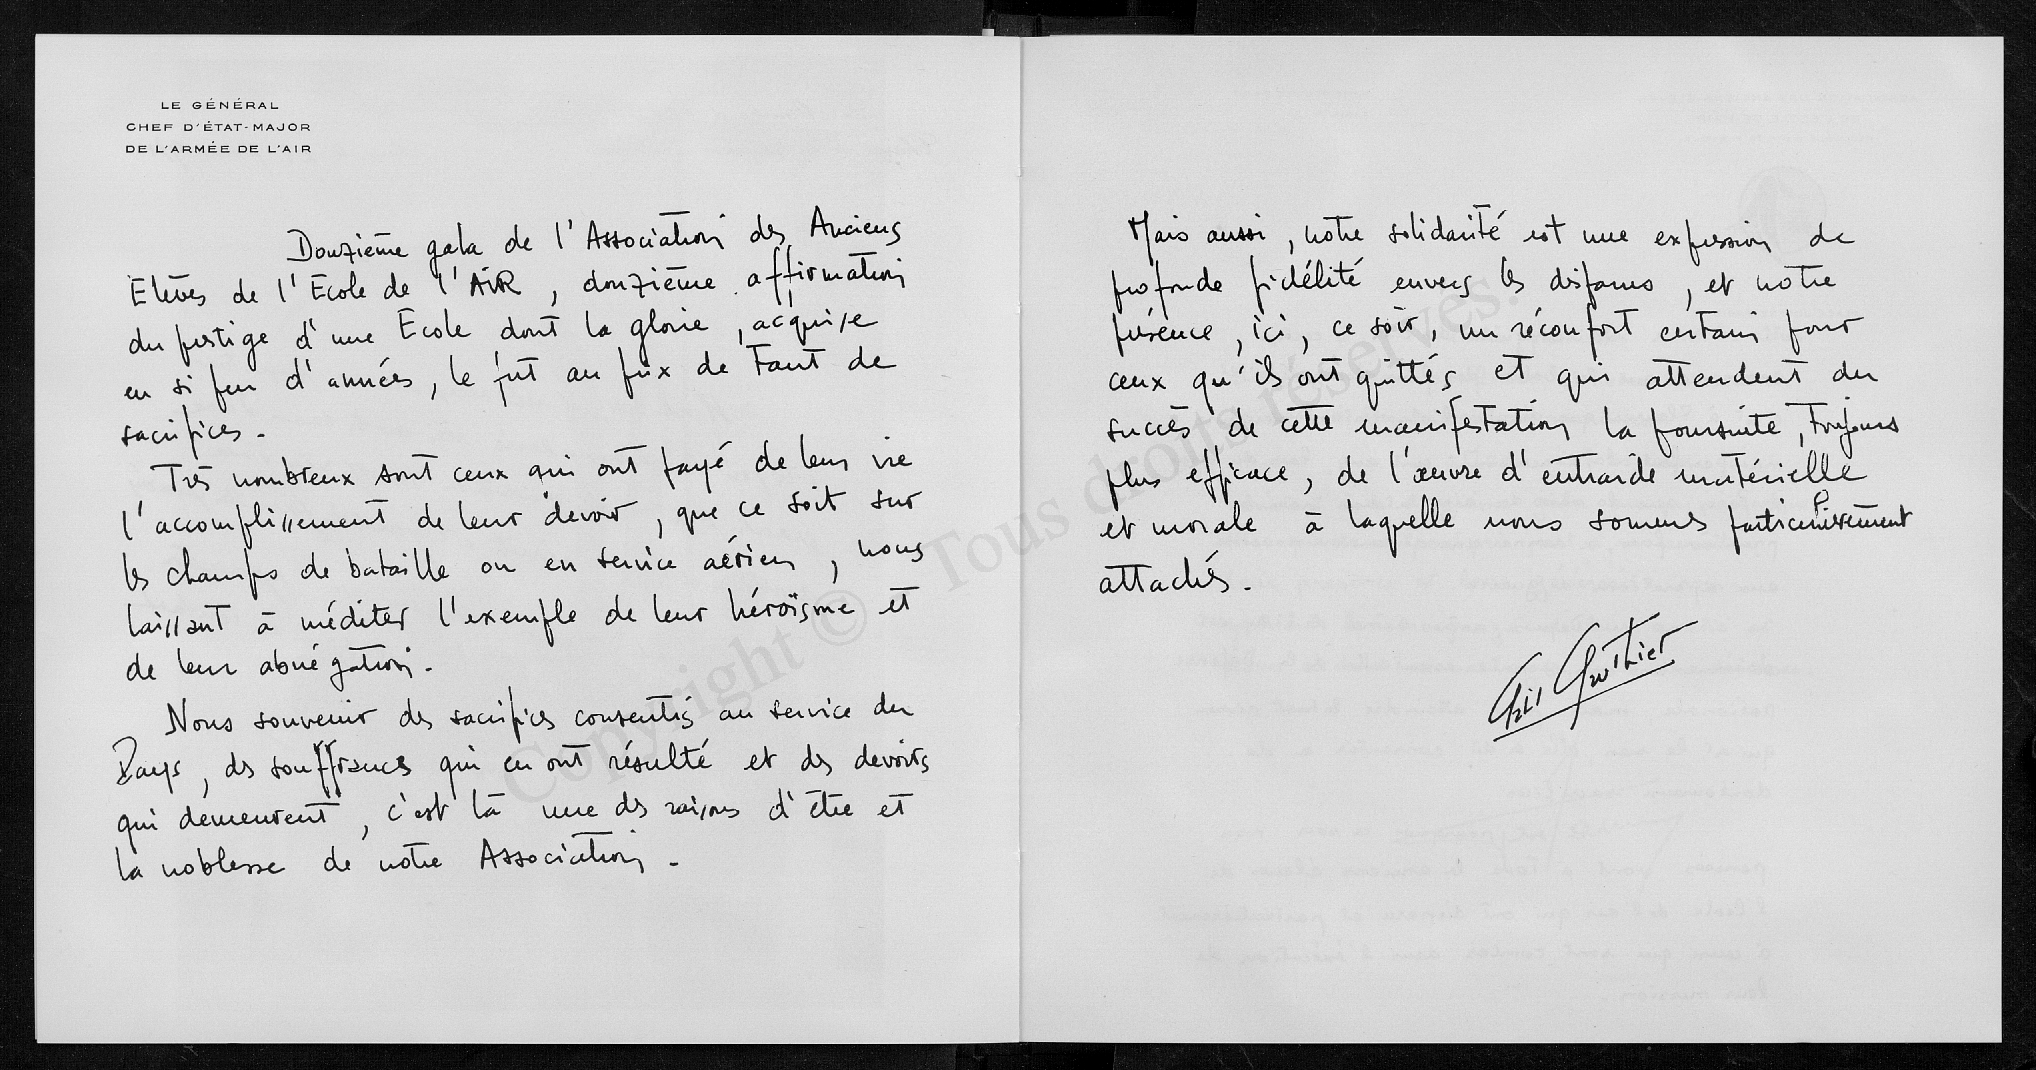 LE GÉNÉRAL
CHEF D'ÉTAT-MAJOR
DE L'ARMÉE DE L'AIR
Douzième gala de l'Association des Anciens
Elèves de l'Ecole de l'AIR, douzième affirmation
du prestige d'une Ecole dont la gloire, acquise
en si peu d'années, le fut au prix de tant de
sacrifices.
Très nombreux sont ceux qui ont payé de leur vie
l'accomplissement de leur devoir, que ce soit sur
les champs de bataille ou en service aérien, nous
laissant à méditer l'exemple de leur héroïsme et
de leur abnégation.
Nous souvenir des sacrifices consentis au service du
Pays, des souffrances qui en ont résulté et des devoirs
qui demeurent, c'est là une des raisons d'être et
la noblesse de notre Association.
Mais aussi, notre solidarité est une expression de
profonde fidélité envers les disparus, et notre
présence, ici, ce soir, un réconfort certain pour
ceux qu'ils ont quittés et qui attendent du
succès de cette manifestation la poursuite, toujours
plus efficace, de l'œuvre d'entraide matérielle
et morale à laquelle nous sommes particulièrement
attachés.
Gauthier
Copyright © Tous droits réservés.